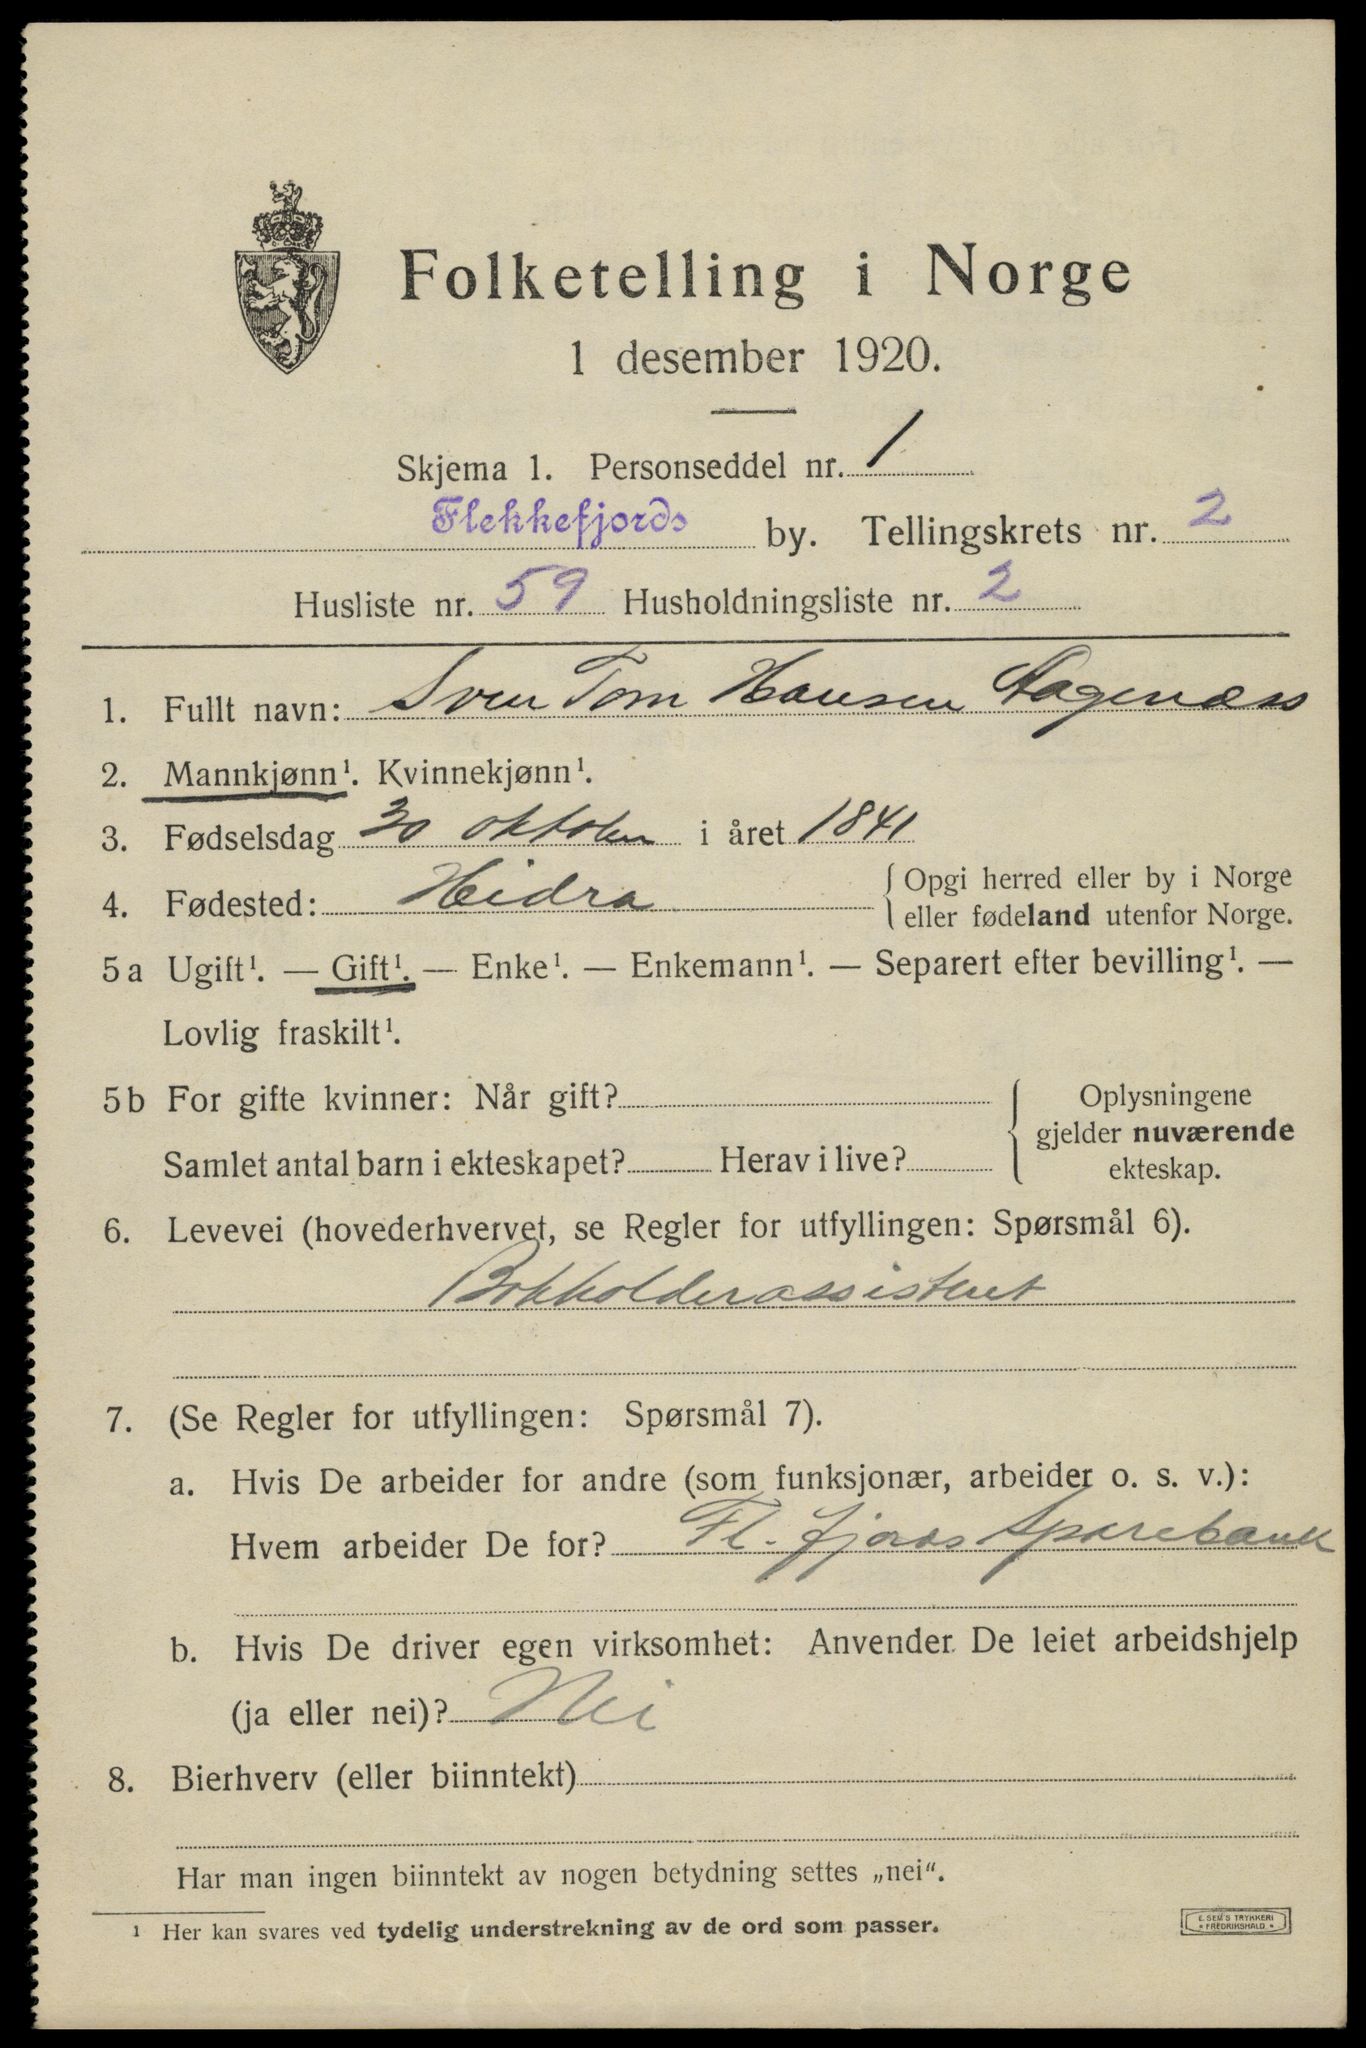 Folketelling i Norge
1 desember 1920.
Skjema 1. Personseddel nr. 1
Flekkefjords by. Tellingskrets nr. 2
Husliste nr. 59 Husholdningsliste nr. 2
1. Fullt navn: Sven Tom Hansen
2. Mannkjønn¹. Kvinnekjønn¹.
3. Fødselsdag 30 oktober i året 1841
4. Fødested: Hidra { Opgi herred eller by i Norge
eller fødeland utenfor Norge.
5a Ugift¹. — Gift¹. — Enke¹. — Enkemann¹. — Separert efter bevilling¹. —
Lovlig fraskilt¹.
5b For gifte kvinner: Når gift? { Oplysningene
gjelder nuværende
Samlet antal barn i ekteskapet? Herav i live?
ekteskap.
6. Levevei (hovederhvervet, se Regler for utfyllingen: Spørsmål 6).
Bokholderassistent
7. (Se Regler for utfyllingen: Spørsmål 7).
a. Hvis De arbeider for andre (som funksjonær, arbeider o. s. v.):
Hvem arbeider De for? Fl.fjords Sparebank
b. Hvis De driver egen virksomhet: Anvender De leiet arbeidshjelp
(ja eller nei)? Nei
8. Bierhverv (eller biinntekt)
Har man ingen biinntekt av nogen betydning settes „nei“.
¹ Her kan svares ved tydelig understrekning av de ord som passer.
E. SEM'S TRYKKERI
* FREDRIKSHALD *